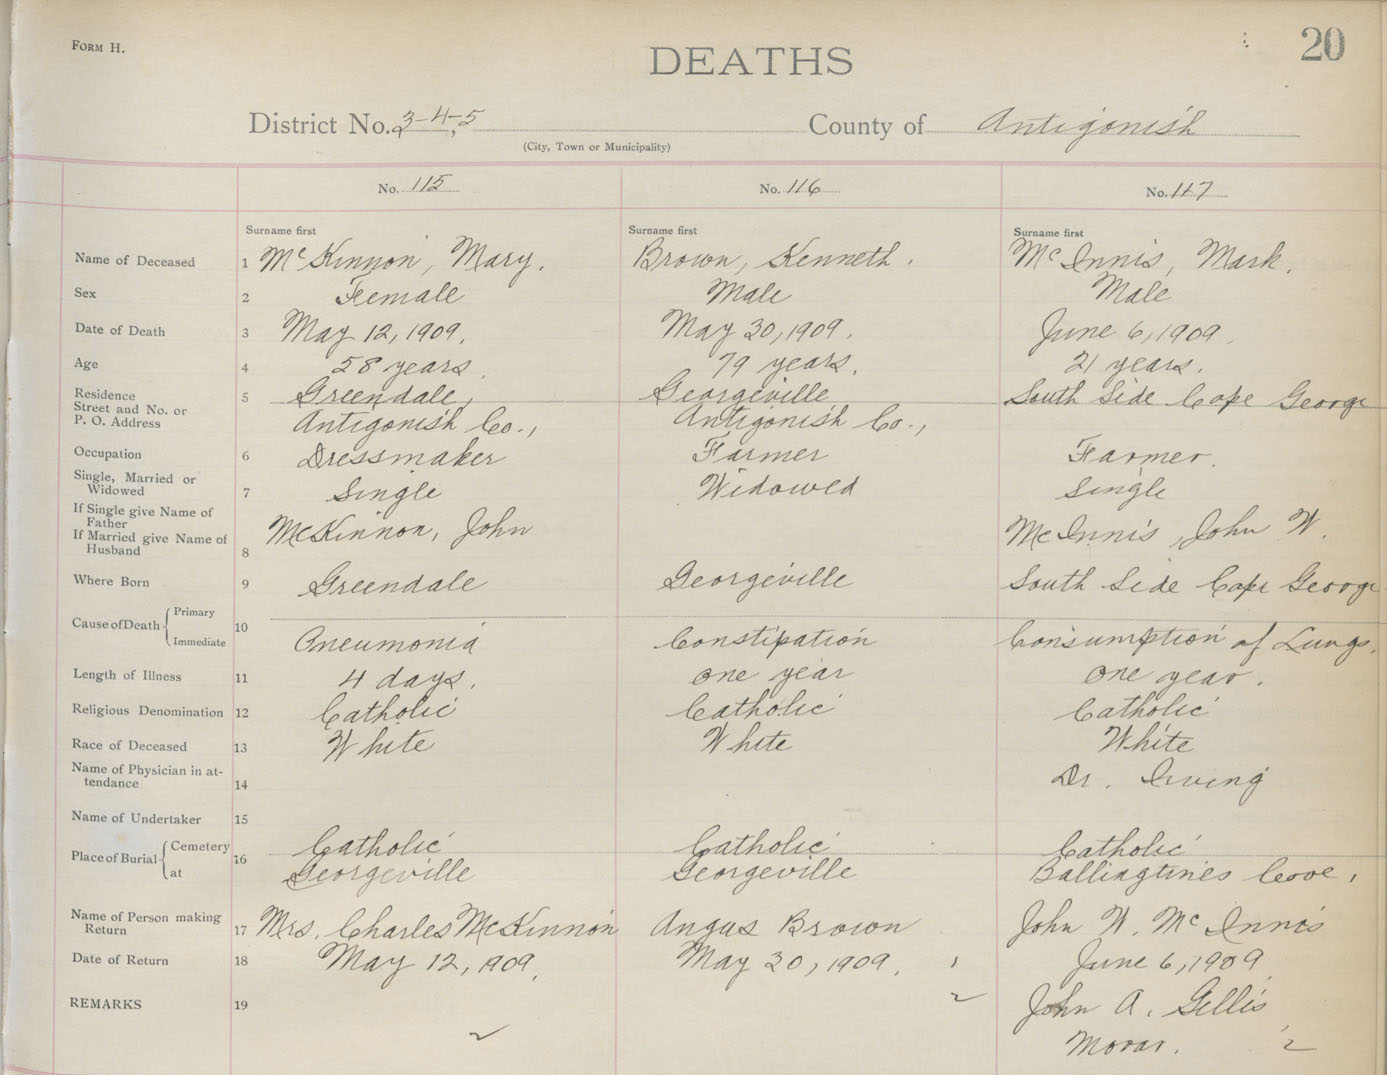 FORM H.
20
DEATHS
District No. 3-4-5 County of Antigonish
(City, Town or Municipality)
No. 115 No. 116 No. 117
Surname first Surname first Surname first
Name of Deceased 1 McKinnon, Mary. Brown, Kenneth. McInnis, Mark.
Sex 2 Female Male Male
Date of Death 3 May 12, 1909. May 30, 1909. June 6, 1909.
Age 4 58 years. 79 years. 21 years.
Residence 5 Greendale, Georgeville South Side Cape George
Street and No. or
P. O. Address Antigonish Co., Antigonish Co.,
Occupation 6 Dressmaker Farmer Farmer.
Single, Married or
Widowed 7 Single Widowed Single
If Single give Name of
Father
If Married give Name of McKinnon, John McInnis, John W.
Husband 8
Where Born 9 Greendale Georgeville South Side Cape George
Cause of Death 10 Primary
Immediate Pneumonia Constipation Consumption of Lungs.
Length of Illness 11 4 days. one year one year.
Religious Denomination 12 Catholic Catholic Catholic
Race of Deceased 13 White White White
Name of Physician in at-
tendance 14 Dr. Irving
Name of Undertaker 15
Place of Burial 16 Cemetery Catholic Catholic Catholic
at Georgeville Georgeville Ballingtines Cove,
Name of Person making
Return 17 Mrs. Charles McKinnon Angus Brown John W. McInnis
Date of Return 18 May 12, 1909. May 30, 1909. June 6, 1909
REMARKS 19 John A. Gillis
Morar.